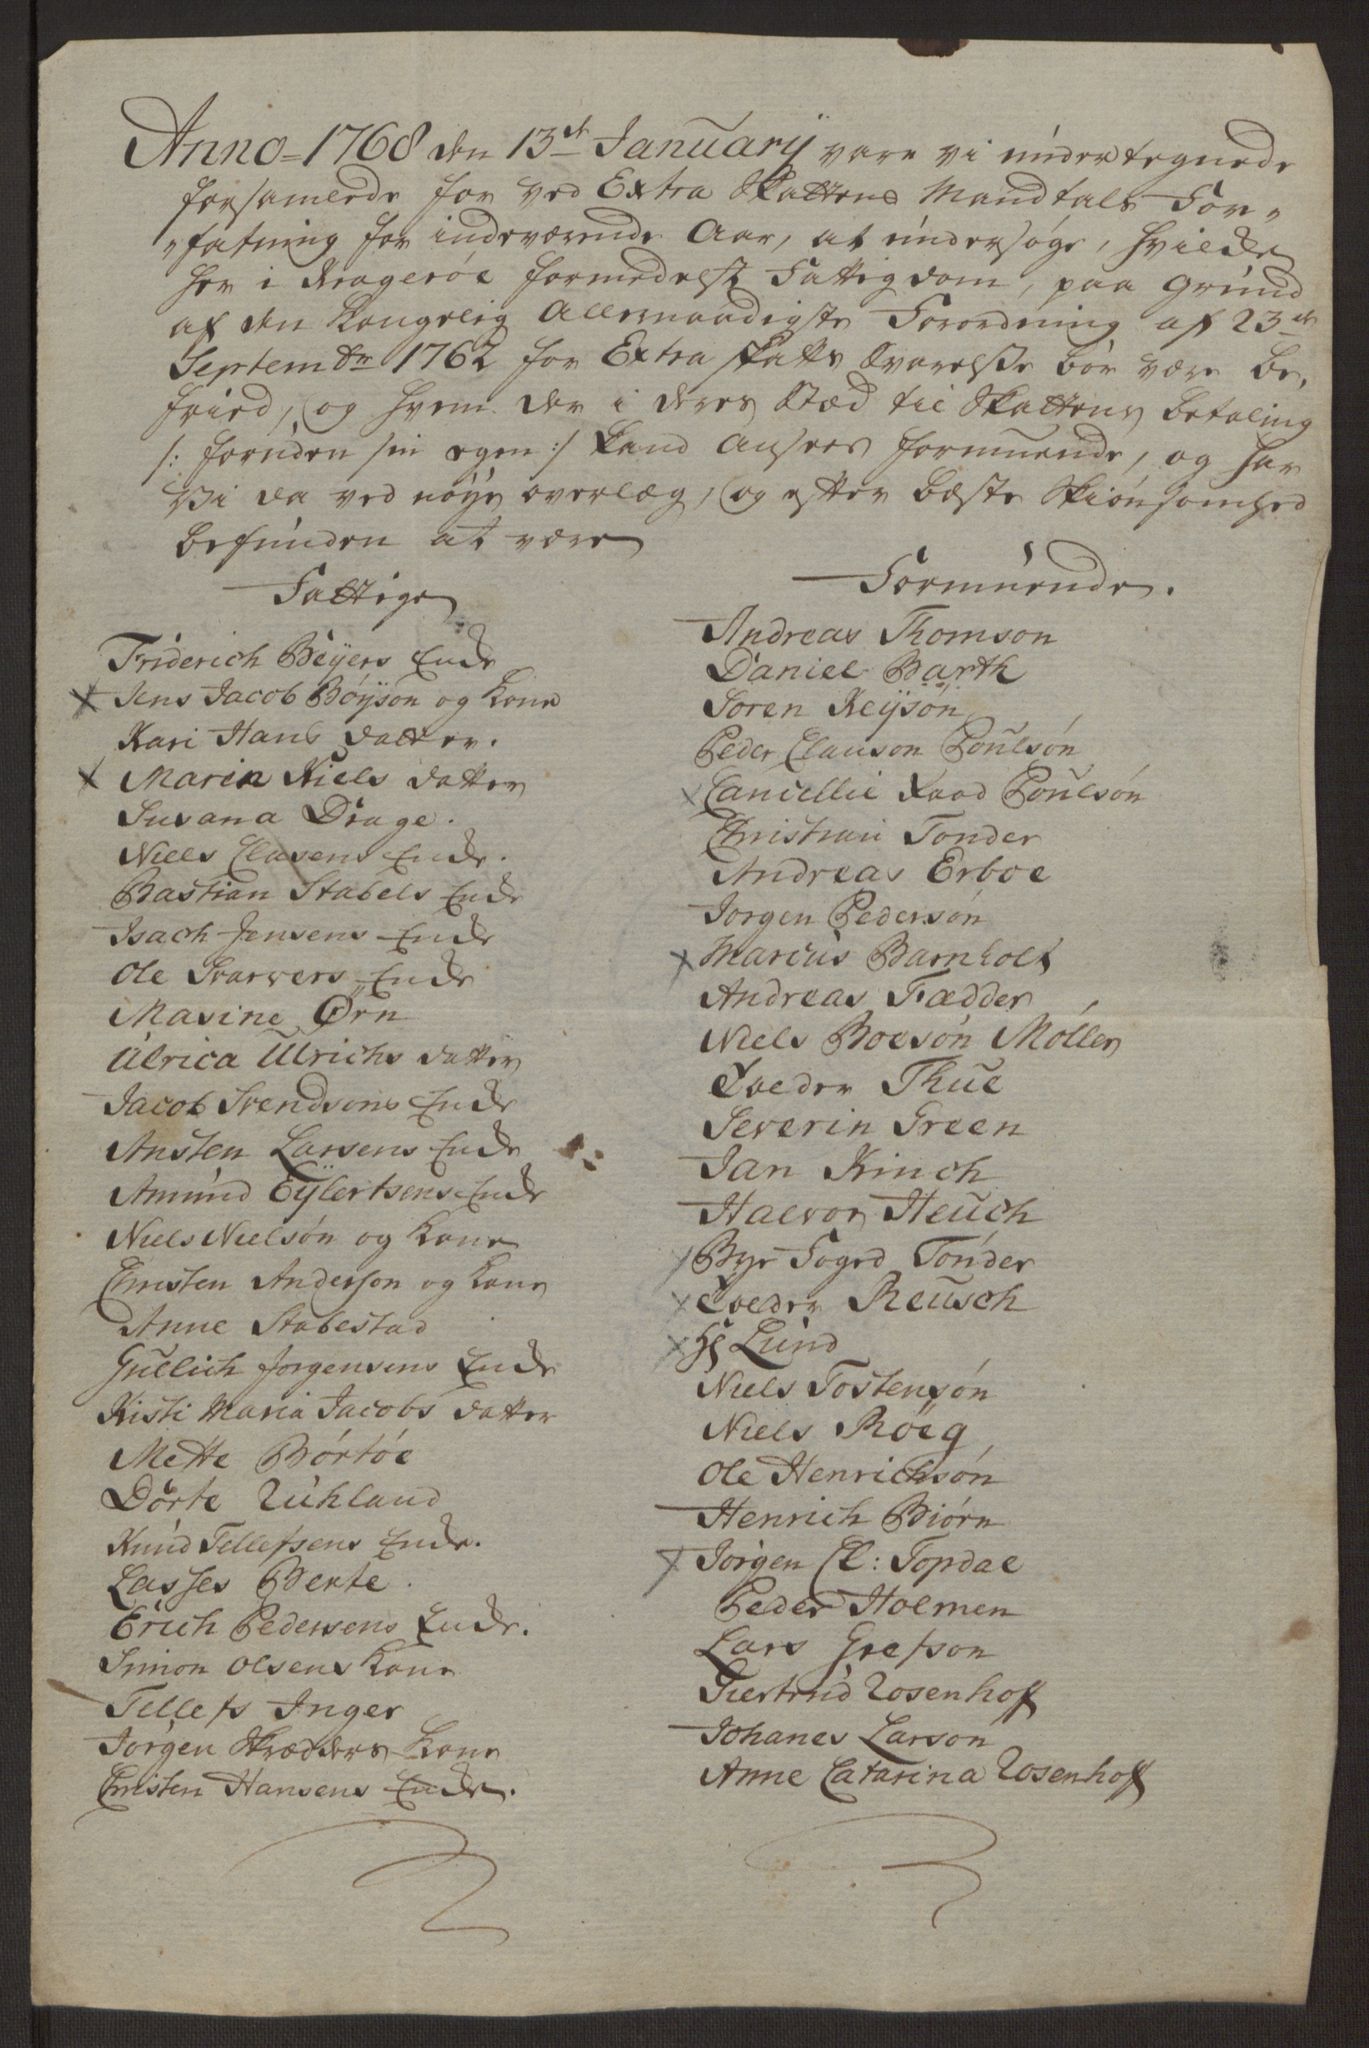 Anno 1768 den 13de Januarij vare vi undertegnede
forsamlede for ved Extra Skattens Mandtals For-
"fatning for indeværende Aar, at undersøge, hvilcke
her i Kragerøe formedelst Fattigdom, paa Grund
af den Kongelig Allernaadigste Forordning af 23de
Septembr 1762 for Extra skatts Svarelse bør være be-
fried, og hvem der i deres Stæd til Skattens betaling
/: foruden sin egen :/ kand ansees formuende, og har
Vi da ved nøye overlæg, og efter beste Skiønsomhed
befunden at være
Fattige
Friderich Beyers Encke
x Jens Jacob Bøyson og Kone
Kari Hans datter.
x Maren Niels datter
Susana Drage.
Niels Clasens Encke.
Bastian Stabels Encke
Isach Jensens Encke
Ole Svarvers Encke
Maxine Ørn
Ulrica Ulrichs datter
Jacob Svendsøns Encke
Ansten Larsens Encke
Amund Eylertsens Encke
Niels Nielsøn og Kone
Christen Anderson og Kone
Anne Stabestad
Gullich Jorgensens Encke
Kisti Maria Jacobs datter
Mette Børtøe
Dorte Ruhland
Knud Tellefsens Encke.
Lasses Berte.
Erich Pedersens Encke.
Simon Olsens Kone
Tellefs Inger
Jørgen Skræders Kone
Christen Hansens Encke.
Formuende.
Andreas Thomson
Daniel Barth
Soren Keysøn
Peder Clauson Poulsøn
x Cancellie Raad Poulsøn
Christian Tonder
Andreas Erboe
Jorgen Pedersøn
x Marcus Barnholt
Andreas Fædder
Niels Boesøn Møller
Tolder Thue
Severin Green
Jan Kinch
Halvor Heuch
x Bye Foged Tønder
x Tolder Reusch
x Hr Lund
Niels Tostensøn
Niels Røeg
Ole Henrichsøn
Henrich Biørn
x Jørgen Cl: Topdal
Peder Holmen
Lars Grefson
Giertrud Rosenhoff
Johanes Larsøn
Anne Catarina Rosenhoff